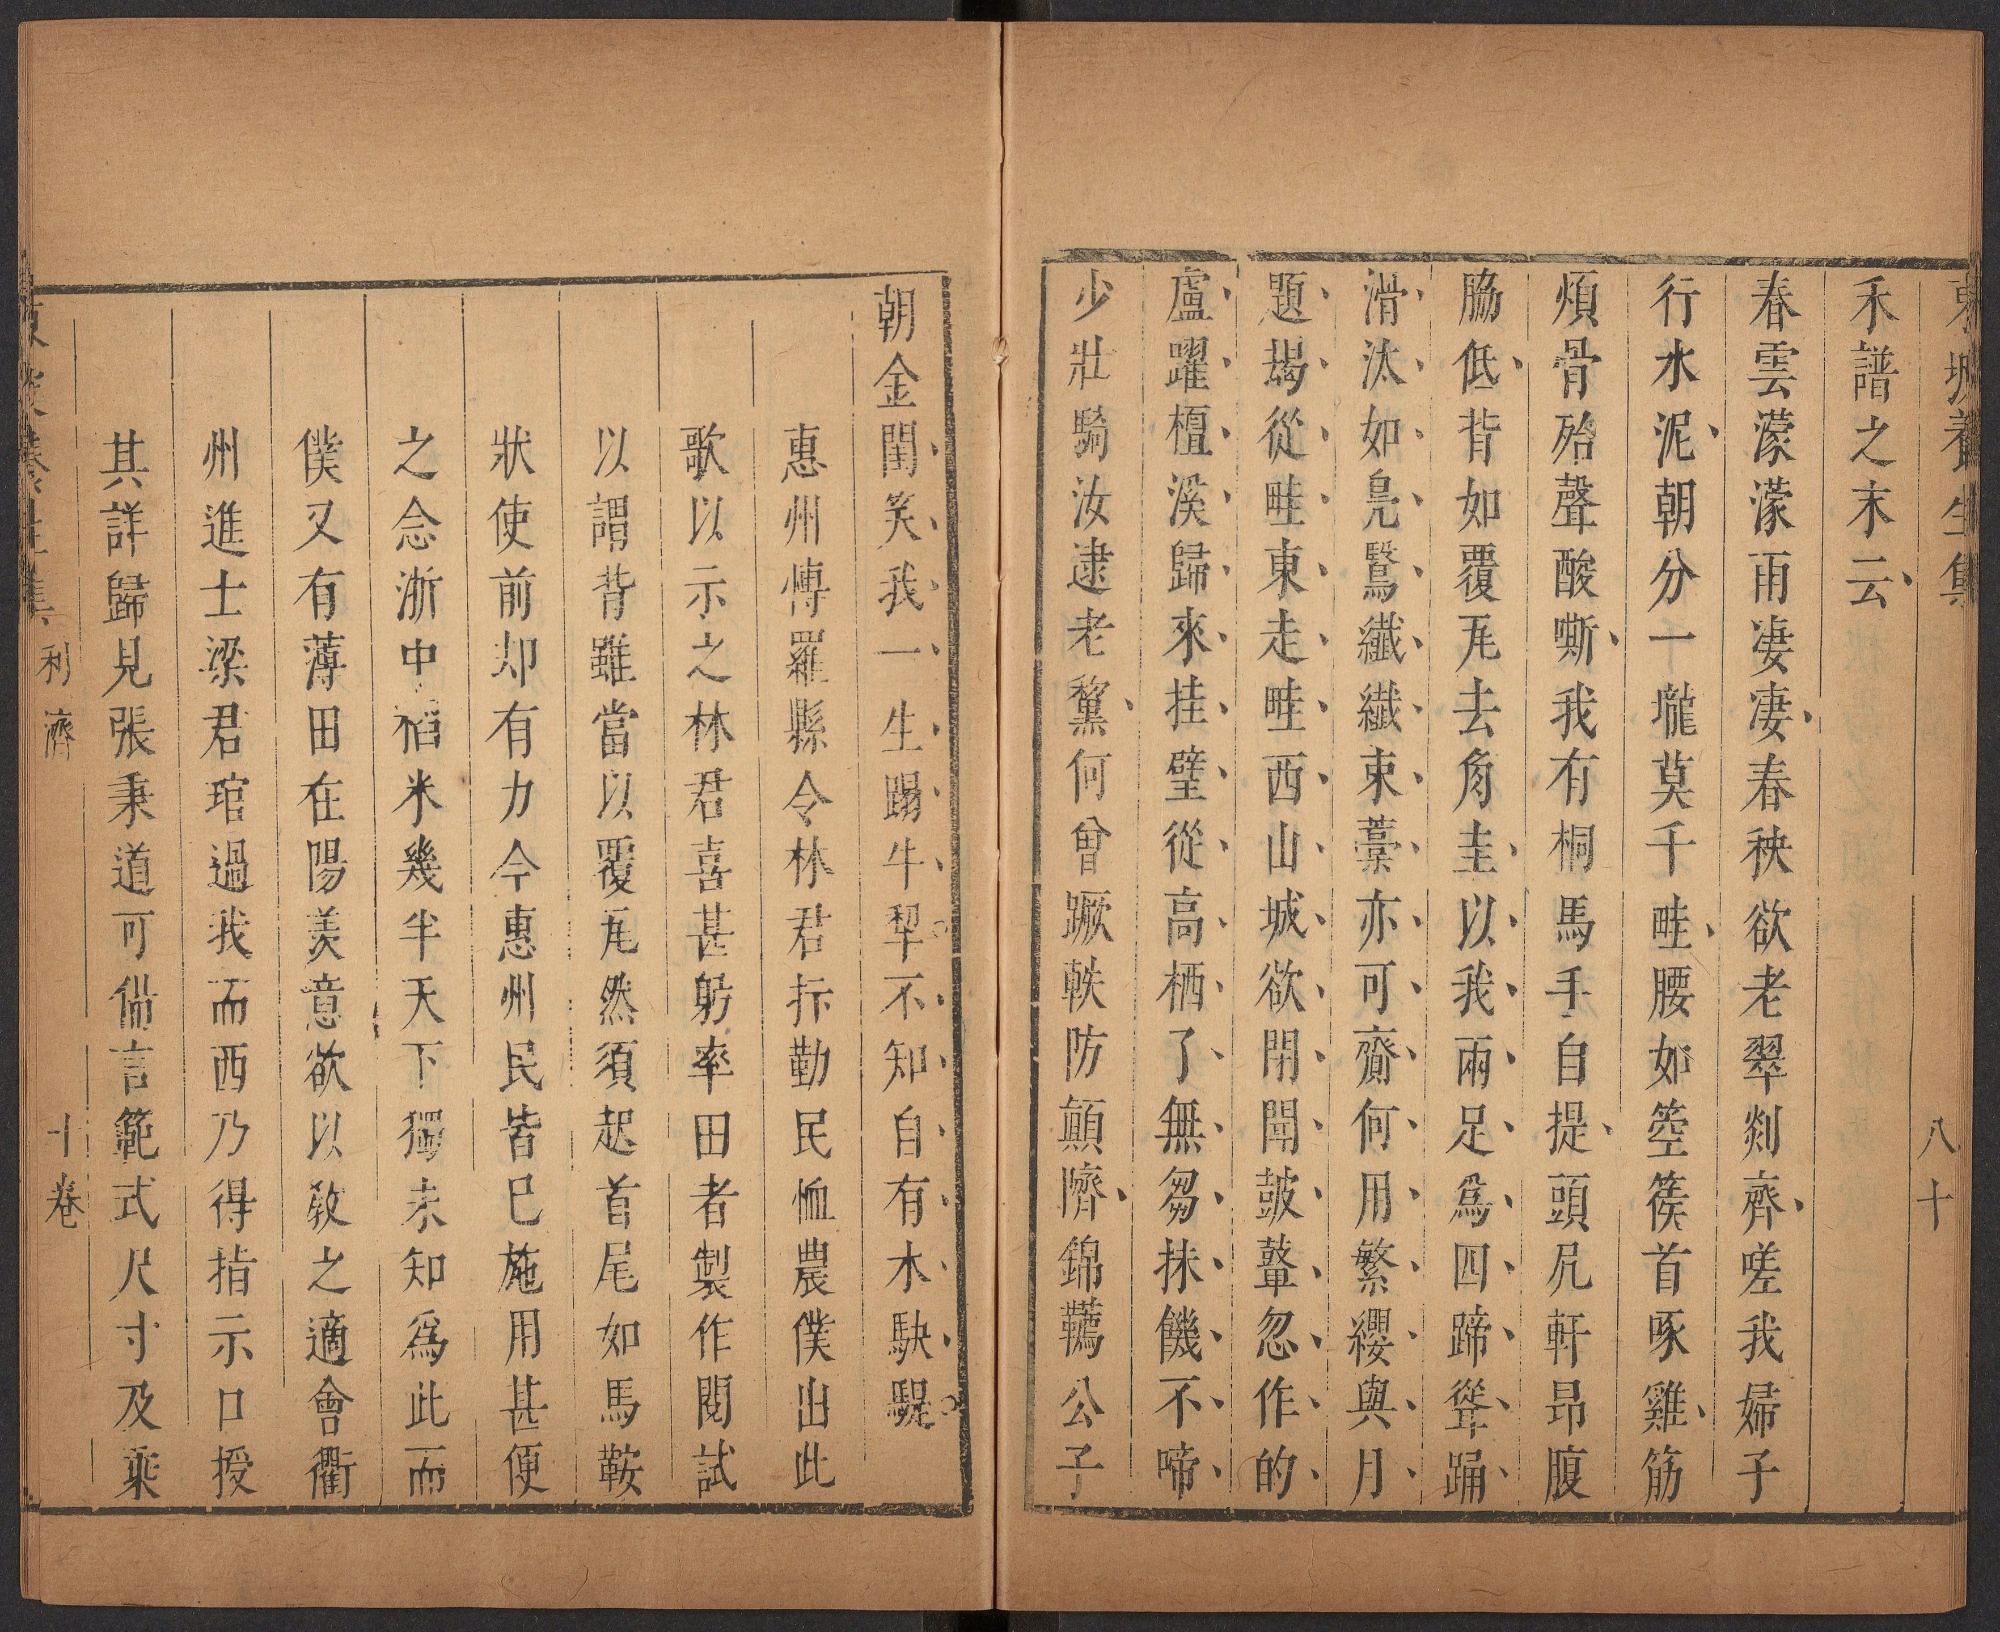 東坡養生集
八十
禾譜之末云
春雲濛濛雨凄凄春秧欲老翠剡齊嗟我婦子
行水泥朝分一壠莫千畦腰如箜篌首啄雞筋
煩骨殆聲酸嘶我有桐馬手自提頭尻軒昂腹
脇低背如覆瓦去角圭以我兩足爲四蹄聳踊
滑汰如鳧鷖纖纖束藁亦可齎何用繁纓與月
題朅從畦東走畦西山城欲閉聞鼓鼙忽作的
盧躍檀溪歸來挂壁從高栖了無芻抹饑不啼
少壯騎汝逮老黧何曾蹶軼防顛隮錦韉公子
朝金閨笑我一生蹋牛犂不知自有木駃騠
惠州博羅縣令林君抃勤民恤農僕出此
歌以示之林君喜甚躬率田者製作閱試
以謂背雖當以覆瓦然須起首尾如馬鞍
狀使前却有力今惠州民皆已施用甚便
之念浙中稻米幾半天下獨未知爲此而
僕又有薄田在陽羨意欲以教之適會衢
州進士梁君琯過我而西乃得指示口授
其詳歸見張秉道可備言範式尺寸及乘
東坡養生集
利濟
十卷